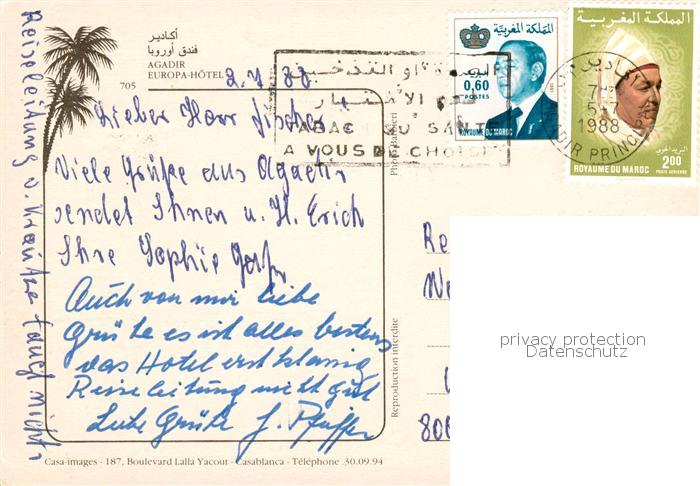 أكادير
فندق أوروبا
AGADIR
EUROPA-HÔTEL
705
2.7.88
Lieber Herr Fischer
Viele Grüße aus Agadir
sendet Ihnen u. H. Erich
Ihre Sophie
Auch von mir liebe
Grüße es ist alles bestens
das Hotel erstklassig
Reiseleitung nicht gut
Liebe Grüße J. Pfeiffer
Reiseleitung v. taugt nicht
Casa-images - 187, Boulevard Lalla Yacout - Casablanca - Téléphone .30.09.94
Reproduction interdite
Photo
المملكة المغربية
البريد
0,60
POSTES
ROYAUME DU MAROC
المملكة المغربية
البريد الجوي
2.00
ROYAUME DU MAROC POSTE AERIENNE
الصحة أو التدخين
لكم الاختيار
TABAC OU SANTE
A VOUS DE CHOISIR
أكادير
1988
AGADIR PRINCIPAL
Re
We
800
privacy protection
Datenschutz